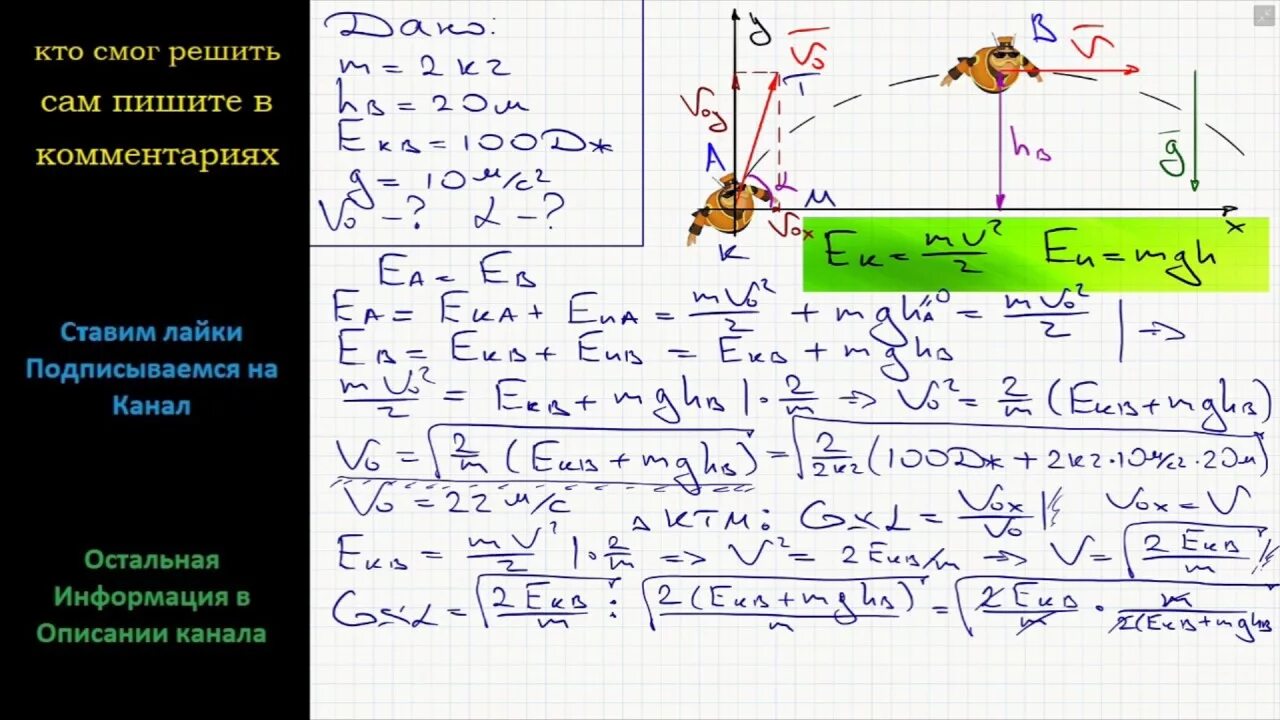 кто смог решить
сам пишите в
комментариях
Ставим лайки
Подписываемся на
Канал
Остальная
Информация в
Описании канала
Дано:
m = 2 кг
hв = 20 м
Eкв = 100 Дж
g = 10 м/с²
V₀ - ? α - ?
y
V₀
V₀y
T
A
α
M
V₀x
K
B
V
hв
g
x
Eк = mv²/2 Eп = mgh
EA = EB
EA = EкA + EпA = mV₀²/2 + mghA = mV₀²/2 | =>
0
EB = EкB + EпB = EкB + mghB
mV₀²/2 = EкB + mghB | · 2/m => V₀² = 2/m (EкB + mghB)
V₀ = √(2/m (EкB + mghB)) = √(2/2кг (100Дж + 2кг·10м/с²·20м))
V₀ = 22 м/с
Δ KTM: Cosα = V₀x/V₀ | V₀x = V
EкB = mV²/2 | · 2/m => V² = 2EкB/m => V = √(2EкB/m)
Cosα = √(2EкB/m) : √(2(EкB + mghB)/m) = √(2EкB/m · m/2(EкB + mghB